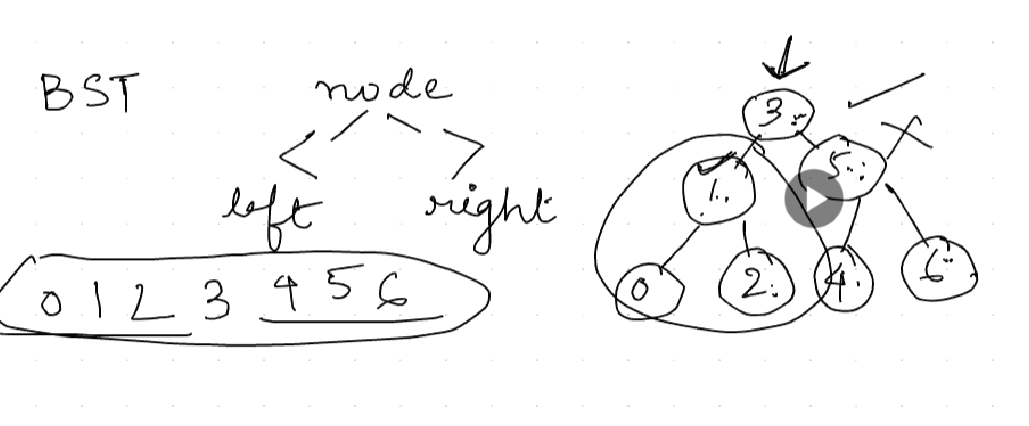 BST
node
< >
left right
0 1 2 3 4 5 6
3
1 5
0 2 4 6